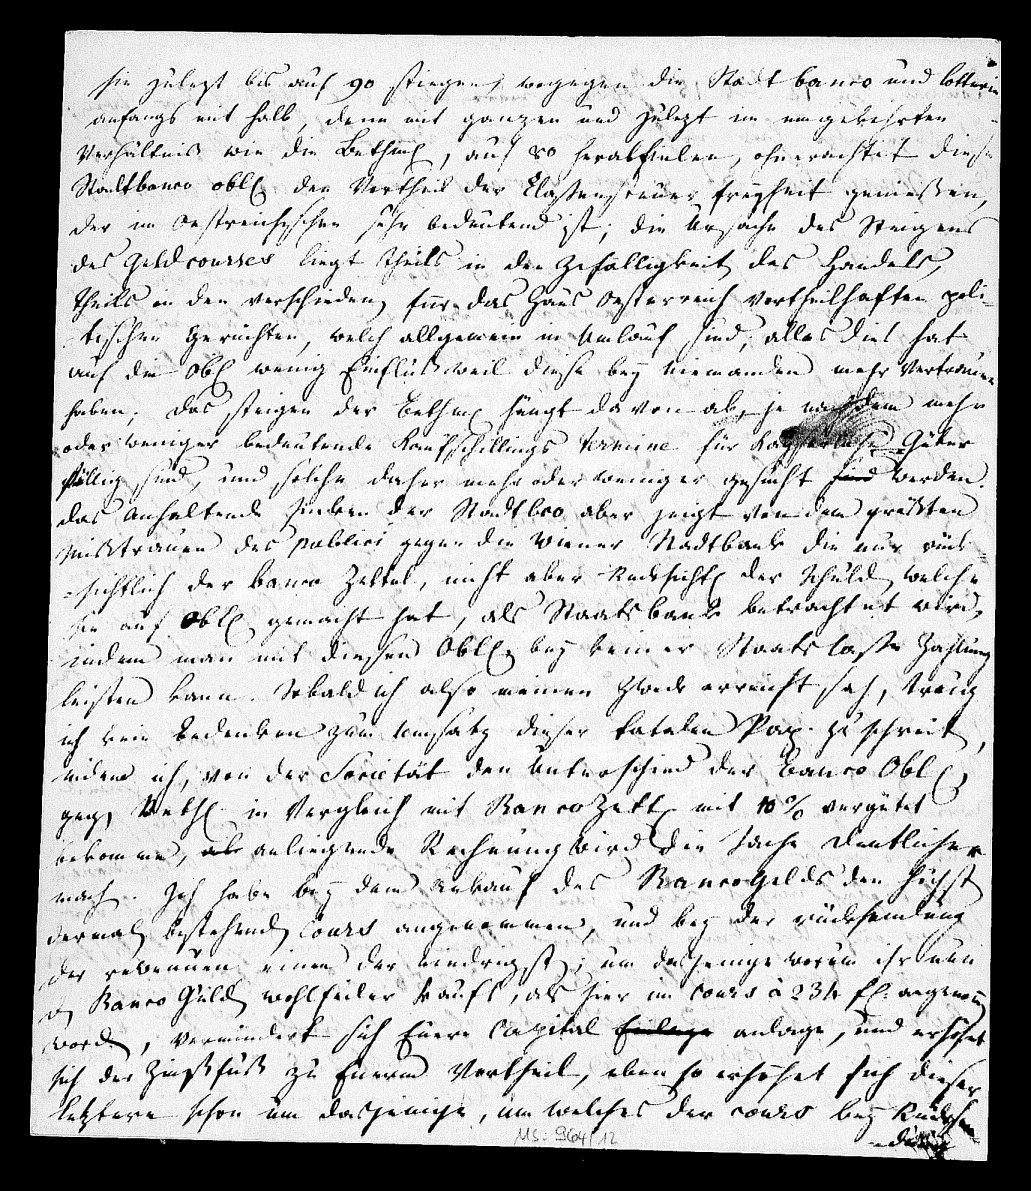 sie zulezt bis auf 90 stiegen, wogegen die Stadt banco und Lotterie
anfangs mit halb, denn mit ganzen und zulezt im umgekehrten
Verhältniß wie die Bethm, auf 80 herabfielen, ohnerachtet diese
Stadtbanco obl den Vortheil der Classensteuer freyheit genießen,
der im Oestreichischen sehr bedeutend ist; die Ursache des Steigens
des Geldcourses liegt theils in der Zufälligkeit des Handels,
theils in den verschieden für das Haus Oesterreich vortheilhaften poli-
tischen Gerüchten, welch allgemein in Umlauf sind, alles dies hat
auf die Obl wenig Einfluß weil diese bey niemanden mehr Vertrauen
haben; das steigen der Bethm hängt davon ab, je nachdem mehr
oder weniger bedeutende Kaufschillings termine für Güter
fällig sind, und solche daher mehr oder weniger gesucht sind werden.
das anhaltende sinken der Stadtbco aber zeigt von dem größten
Mißtrauen des publici gegen die Wiener Stadtbank die nur rück-
sichtlich der banco Zettel, nicht aber Rücksichtl der Schuld welche
sie auf Obl gemacht hat, als Staatsbank betrachtet wird,
indem man mit diesen Obl bey keiner Staats casse Zahlung
leisten kann. Sobald ich also meinen Zweck erreicht sah, trug
ich kein Bedenken zum Umsatz dieser fatalen Pap zu schreit,
indem ich, von der Societät den Unterschied der Banco Obl
geg Beth in Vergleich mit Banco Zett mit 10% vergütet
bekomme, als anliegende Rechnung wird die Sache deutlicher
mach. Ich habe bey dem Ankauf des Bancogelds den höchst
dermal bestehend Cours angenommen, und bey der rücksendung
der revenuen einen der niedrigst; um dasjenige warum ihr nun
d Banco Guld wohlfeiler kauft, als hier im cours à 234 fl. angenom
word, vermindert sich Euere Capital Einlage anlage, und erhöhet
sich der Zinßfuß zu Euerm Vortheil, eben so erhöhet sich dieser
letztere schon um dasjenige, um welches der cours bey Rücksen
dung
MS: 964/12